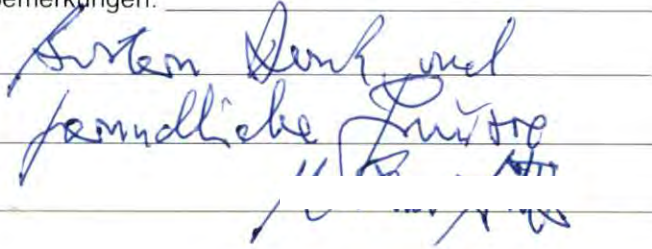 Bemerkungen:
Besten Dank und
freundliche Grüsse